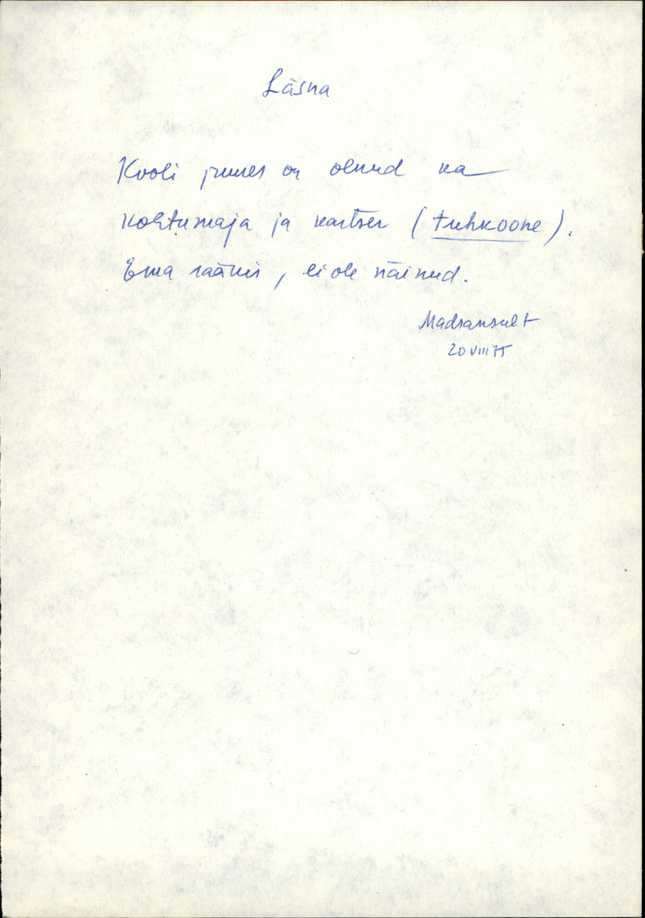 Läsna
Kooli juures on olnud ka
kohtumaja ja kartser (tuhkoone).
Ema rääkis, ei ole näinud.
Madsansult
20 VIII 75